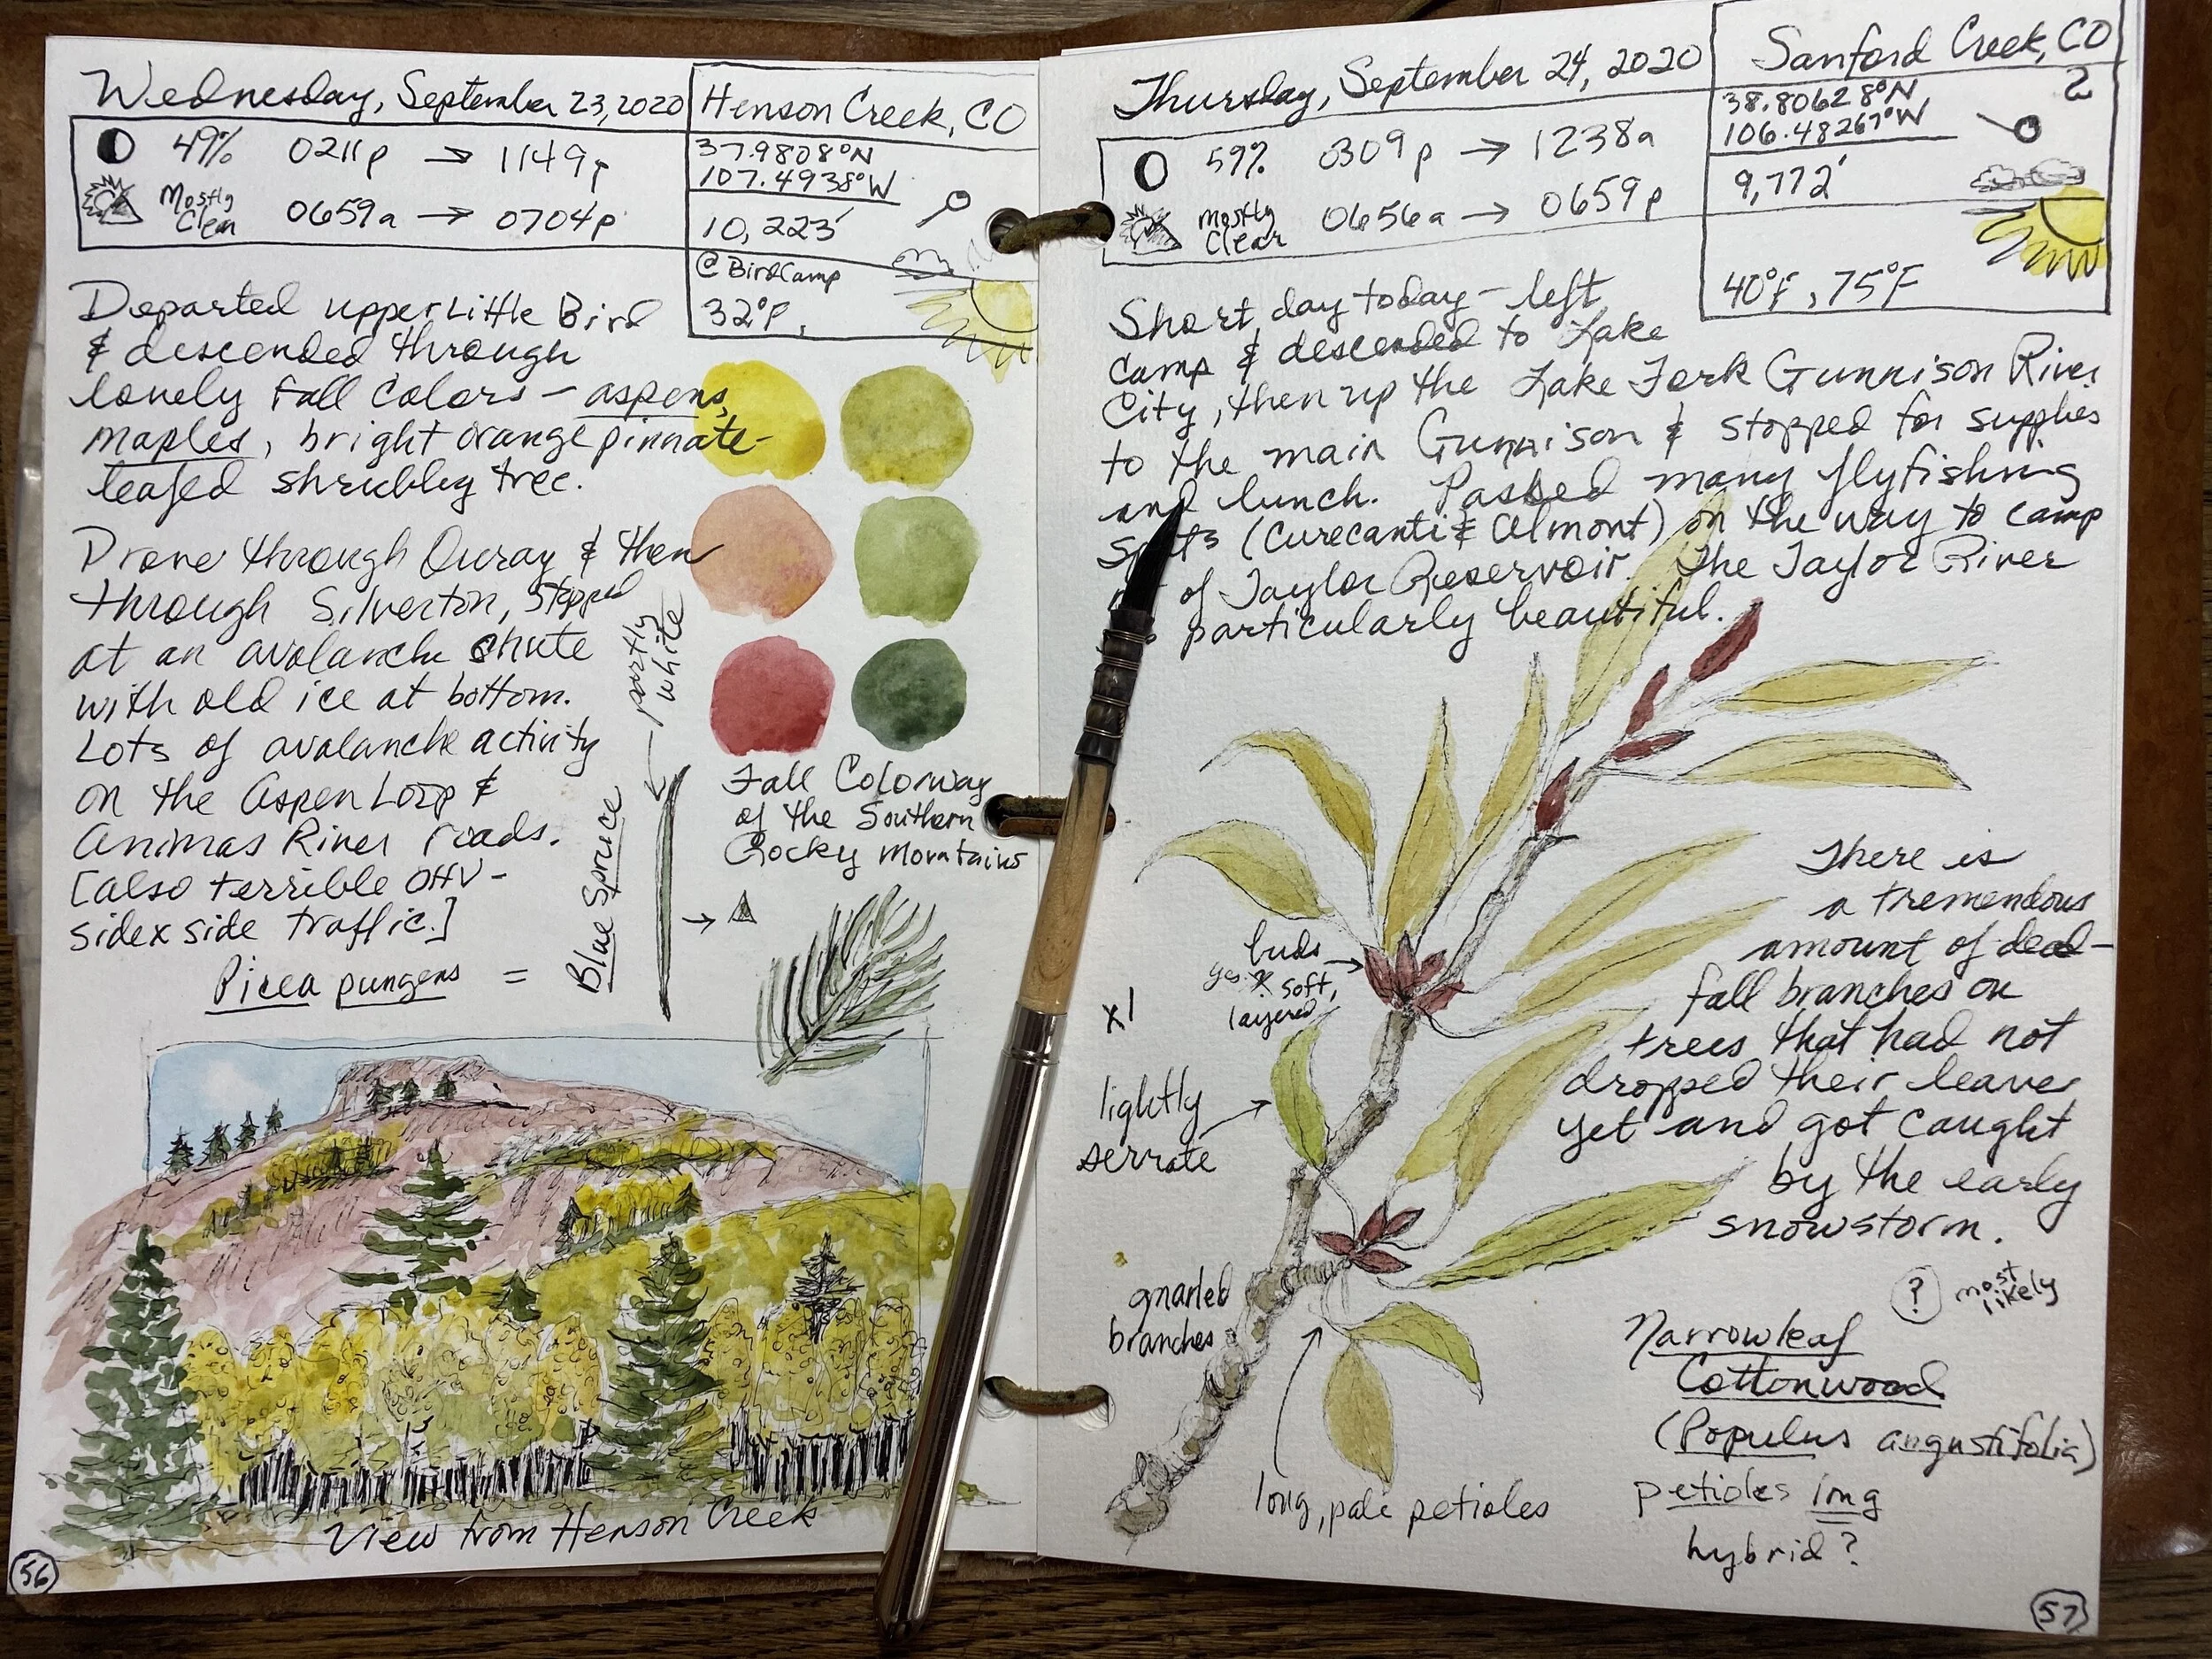 Wednesday, September 23, 2020
Henson Creek, CO
49% 0211p → 1149p
Mostly
Clear
0659a → 0704p
37.9808°N
107.4938°W
10,223'
@ BirdCamp
32°F,
Departed upper Little Bird
& descended through
lovely fall colors – aspens,
maples, bright orange pinnate-
leafed shrubby tree.
Drove through Ouray & then
through Silverton, stopped
at an avalanche chute
with old ice at bottom.
Lots of avalanche activity
on the Aspen Loop &
Animas River roads.
[also terrible OHV-
sidexside traffic.]
Picea pungens =
Blue Spruce
partly
white
Fall Colorway
of the Southern
Rocky Mountains
View from Henson Creek
56
Thursday, September 24, 2020
Sanford Creek, CO
59% 0309p → 1238a
mostly
Clear
0656a → 0659p
38.80628°N
106.48267°W
9,772'
40°F, 75°F
Short day today – left
camp & descended to Lake
City, then up the Lake Fork Gunnison River
to the main Gunnison & stopped for supplies
and lunch. Passed many flyfishing
spots (Curecanti & Almont) on the way to camp
of Taylor Reservoir. The Taylor River
particularly beautiful.
There is
a tremendous
amount of dead-
fall branches on
trees that had not
dropped their leaves
yet and got caught
by the early
snowstorm.
buds
soft,
layered
x1
lightly
serrate
gnarled
branches
long, pale petioles
? most
likely
Narrowleaf
Cottonwood
(Populus angustifolia)
petioles long
hybrid?
57